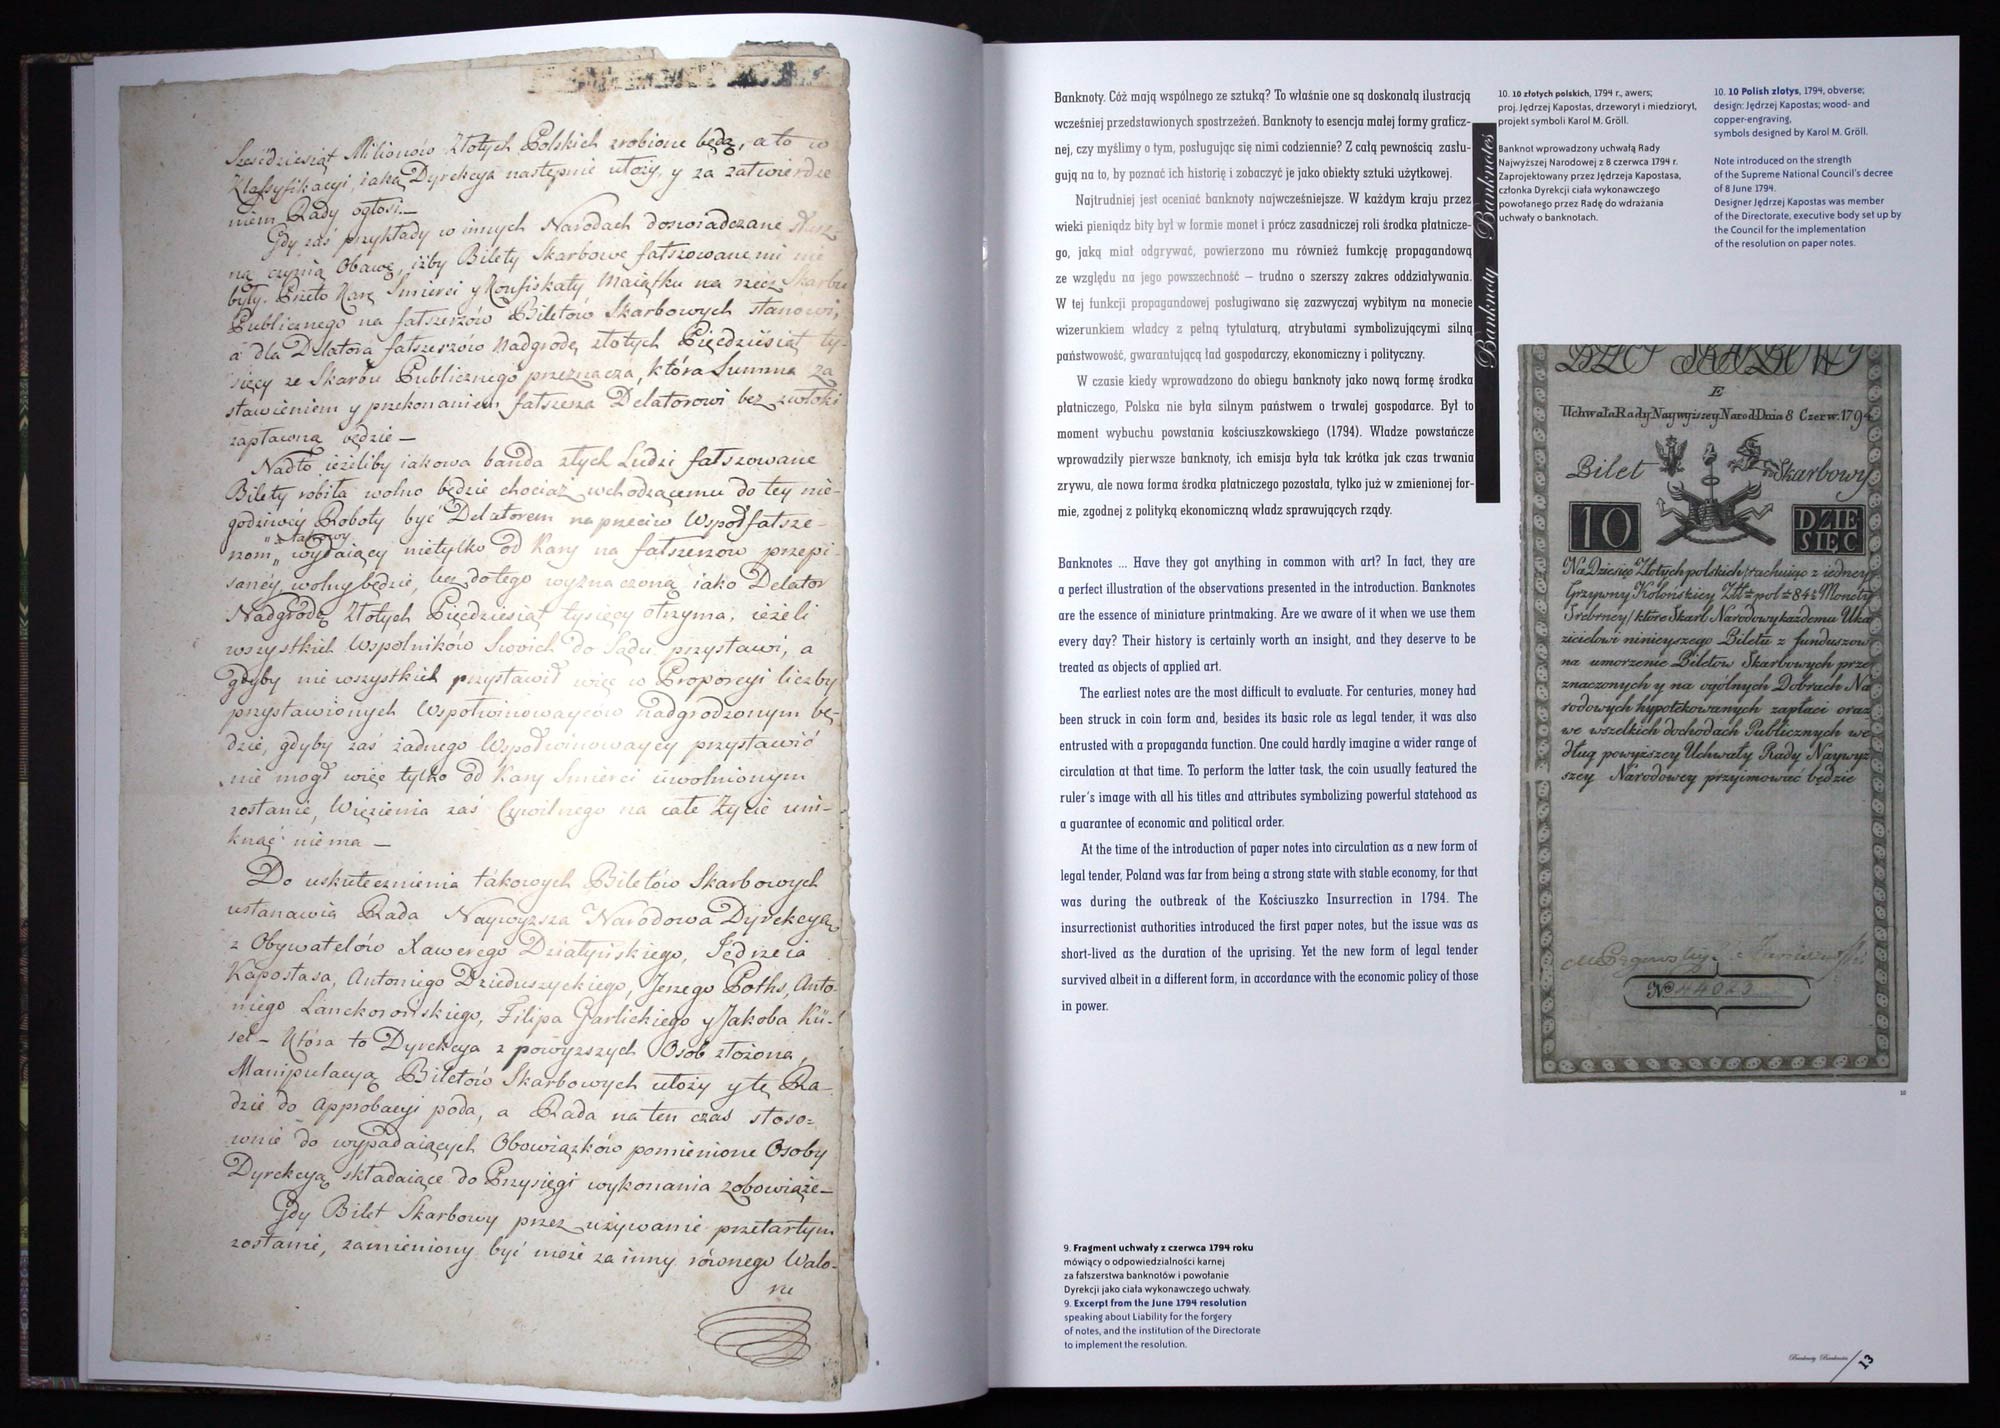 Sześćdziesiąt Milionów Złotych Polskich zrobione będą, a to w
Klassyfikacyi, iaką Dyrekcya następnie ułoży, y za zatwierdze
niem Rady ogłosi.—
Gdy zaś przykłady w innych Narodach doświadczane
czynią Obawę, iżby Bilety Skarbowe fałszowanemi nie
były. Przeto Karę Smierci y Konfiskaty Maiątku na rzecz Skarbu
Publicznego na fałszerzów Biletów Skarbowych stanowi,
a dla Delatora fałszerzów Nadgrodę złotych Pięćdziesiąt ty-
sięcy ze Skarbu Publicznego przeznacza, która Summa za
stawieniem y przekonaniem fałszerza Delatorowi bez zwłoki
zapłacona będzie —
Nadto ieżeliby iakowa banda złych Ludzi fałszowane
Bilety robiła wolno będzie chociaż wchodzącemu do tey nie-
godziwey Roboty być Delatorem naprzeciw Wspołfałsze-
rzom, takowy wydaiący nietylko od Kary na fałszerzow przepi-
saney wolny będzie, lecz do tego wyznaczoną iako Delator
Nadgrodę Złotych Pięćdziesiąt tysięcy otrzyma, ieżeli
wszystkich Wspolników Swoich do Sądu przystawi, a
gdyby nie wszystkich przystawił więc w Proporcyi liczby
przystawionych Wspołwinowayców nadgrodzonym bę-
dzie, gdyby zaś żadnego Wspołwinowaycy przystawić
nie mogł więc tylko od Kary Smierci uwolnionym
zostanie, Więzienia zaś Cywilnego na całe Życie uni-
knąć nie ma —
Do uskutecznienia takowych Biletów Skarbowych
ustanawia Rada Naywyższa Narodowa Dyrekcyą
z Obywatelów Xawerego Działyńskiego, Jędrzeia
Kapostasa, Antoniego Dzieduszyckiego, Jerzego Poths, Anto-
niego Lanckorońskiego, Filipa Garlickiego y Jakoba Kü-
sel — Która to Dyrekcya z powyższych Osób złożona,
Manipulacyą Biletów Skarbowych ułoży y tę Ra-
dzie do Approbacyi poda, a Rada na ten czas stoso-
wnie do wypadaiących Obowiązków pomienione Osoby
Dyrekcyą składaiące do Przysięgi wykonania zobowiąże —
Gdy Bilet Skarbowy przez używanie przetartym
zostanie, zamieniony być może za inny równego Walo-
ru
Banknoty. Cóż mają wspólnego ze sztuką? To właśnie one są doskonałą ilustracją
wcześniej przedstawionych spostrzeżeń. Banknoty to esencja małej formy graficz-
nej, czy myślimy o tym, posługując się nimi codziennie? Z całą pewnością zasłu-
gują na to, by poznać ich historię i zobaczyć je jako obiekty sztuki użytkowej.
Najtrudniej jest oceniać banknoty najwcześniejsze. W każdym kraju przez
wieki pieniądz bity był w formie monet i prócz zasadniczej roli środka płatnicze-
go, jaką miał odgrywać, powierzono mu również funkcję propagandową
ze względu na jego powszechność – trudno o szerszy zakres oddziaływania.
W tej funkcji propagandowej posługiwano się zazwyczaj wybitym na monecie
wizerunkiem władcy z pełną tytulaturą, atrybutami symbolizującymi silną
państwowość, gwarantującą ład gospodarczy, ekonomiczny i polityczny.
W czasie kiedy wprowadzono do obiegu banknoty jako nową formę środka
płatniczego, Polska nie była silnym państwem o trwałej gospodarce. Był to
moment wybuchu powstania kościuszkowskiego (1794). Władze powstańcze
wprowadziły pierwsze banknoty, ich emisja była tak krótka jak czas trwania
zrywu, ale nowa forma środka płatniczego pozostała, tylko już w zmienionej for-
mie, zgodnej z polityką ekonomiczną władz sprawujących rządy.
Banknotes ... Have they got anything in common with art? In fact, they are
a perfect illustration of the observations presented in the introduction. Banknotes
are the essence of miniature printmaking. Are we aware of it when we use them
every day? Their history is certainly worth an insight, and they deserve to be
treated as objects of applied art.
The earliest notes are the most difficult to evaluate. For centuries, money had
been struck in coin form and, besides its basic role as legal tender, it was also
entrusted with a propaganda function. One could hardly imagine a wider range of
circulation at that time. To perform the latter task, the coin usually featured the
ruler's image with all his titles and attributes symbolizing powerful statehood as
a guarantee of economic and political order.
At the time of the introduction of paper notes into circulation as a new form of
legal tender, Poland was far from being a strong state with stable economy, for that
was during the outbreak of the Kościuszko Insurrection in 1794. The
insurrectionist authorities introduced the first paper notes, but the issue was as
short-lived as the duration of the uprising. Yet the new form of legal tender
survived albeit in a different form, in accordance with the economic policy of those
in power.
9. Fragment uchwały z czerwca 1794 roku
mówiący o odpowiedzialności karnej
za fałszerstwa banknotów i powołanie
Dyrekcji jako ciała wykonawczego uchwały.
9. Excerpt from the June 1794 resolution
speaking about Liability for the forgery
of notes, and the institution of the Directorate
to implement the resolution.
Banknoty Banknotes
10. 10 złotych polskich, 1794 r., awers;
proj. Jędrzej Kapostas, drzeworyt i miedzioryt,
projekt symboli Karol M. Gröll.
Banknot wprowadzony uchwałą Rady
Najwyższej Narodowej z 8 czerwca 1794 r.
Zaprojektowany przez Jędrzeja Kapostasa,
członka Dyrekcji ciała wykonawczego
powołanego przez Radę do wdrażania
uchwały o banknotach.
10. 10 Polish zlotys, 1794, obverse;
design: Jędrzej Kapostas; wood- and
copper-engraving,
symbols designed by Karol M. Gröll.
Note introduced on the strength
of the Supreme National Council's decree
of 8 June 1794.
Designer Jędrzej Kapostas was member
of the Directorate, executive body set up by
the Council for the implementation
of the resolution on paper notes.
Uchwała Rady Naywyższey Narod: Dnia 8 Czerw. 1794
Bilet Skarbowy
10 DZIE
SIĘĆ
Na Dziesięć Złotych polskich rachuiąc z iedney
Grzywny Kolońskiey Złł: pol: 84½ Monety
Srebrney/ które Skarb Narodowy każdemu Uka
zicielowi ninieyszego Biletu z funduszow
na umorzenie Biletow Skarbowych prze
znaczonych y na ogólnych Dobrach Na
rodowych hypotekowanych zapłaci oraz
we wszelkich dochodach Publicznych we
dług powyższey Uchwały Rady Naywyż
szey Narodowey przyimować będzie
No
10
Banknoty Banknotes / 13